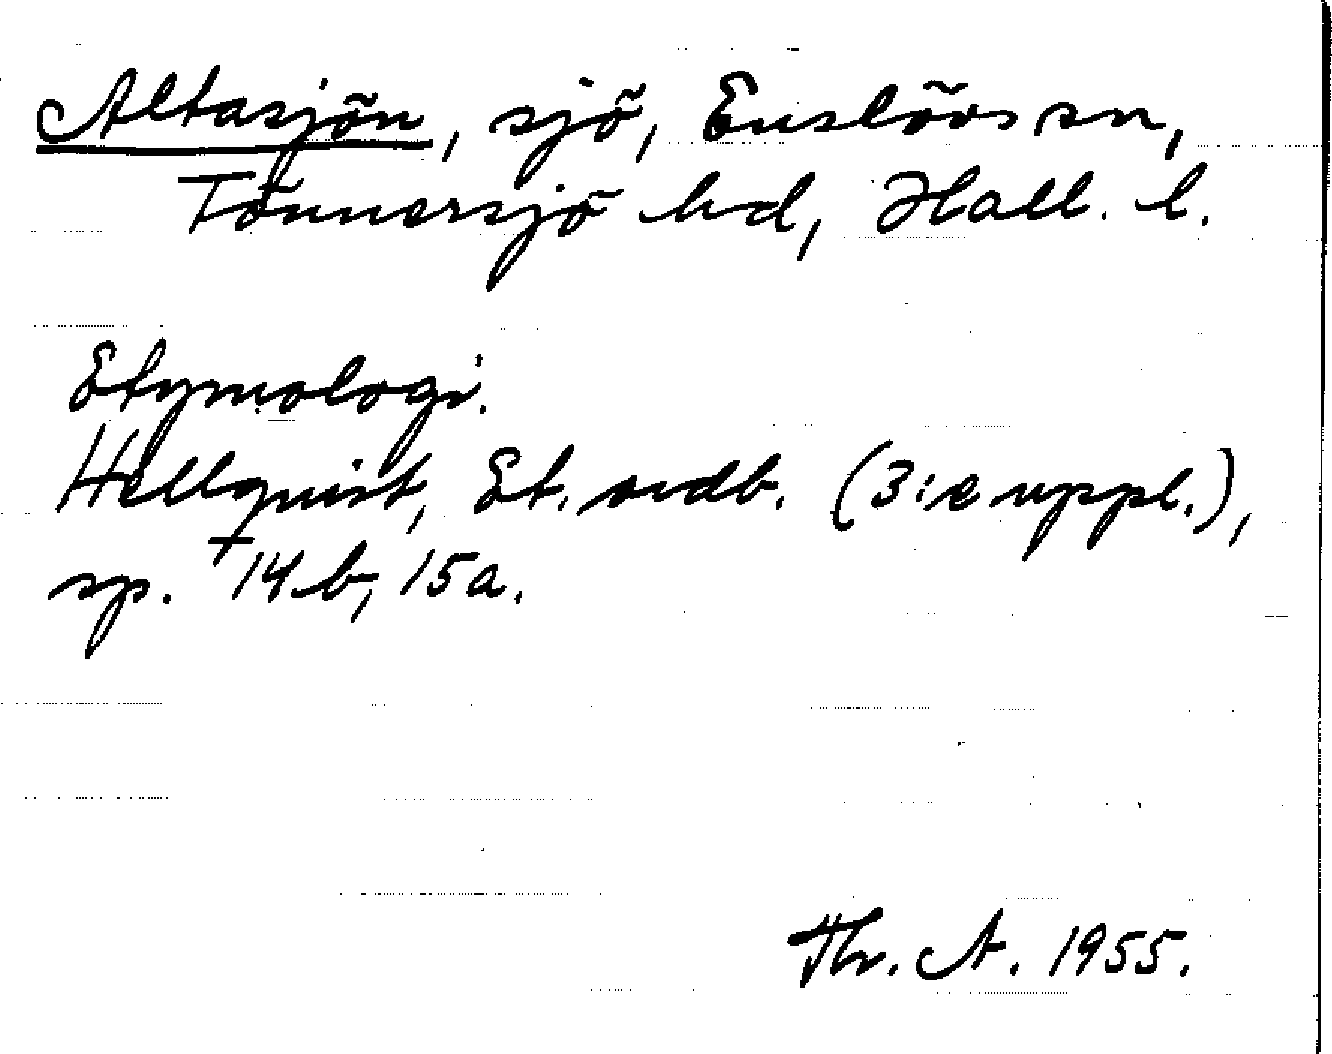 Altasjön, sjö, Enslövs sn,
Tönnersjö hd, Hall. l.
Etymologi.
Hellquist, Et. ordb. (3:e uppl.),
sp. 14 b, 15 a.
Thr. A. 1955.